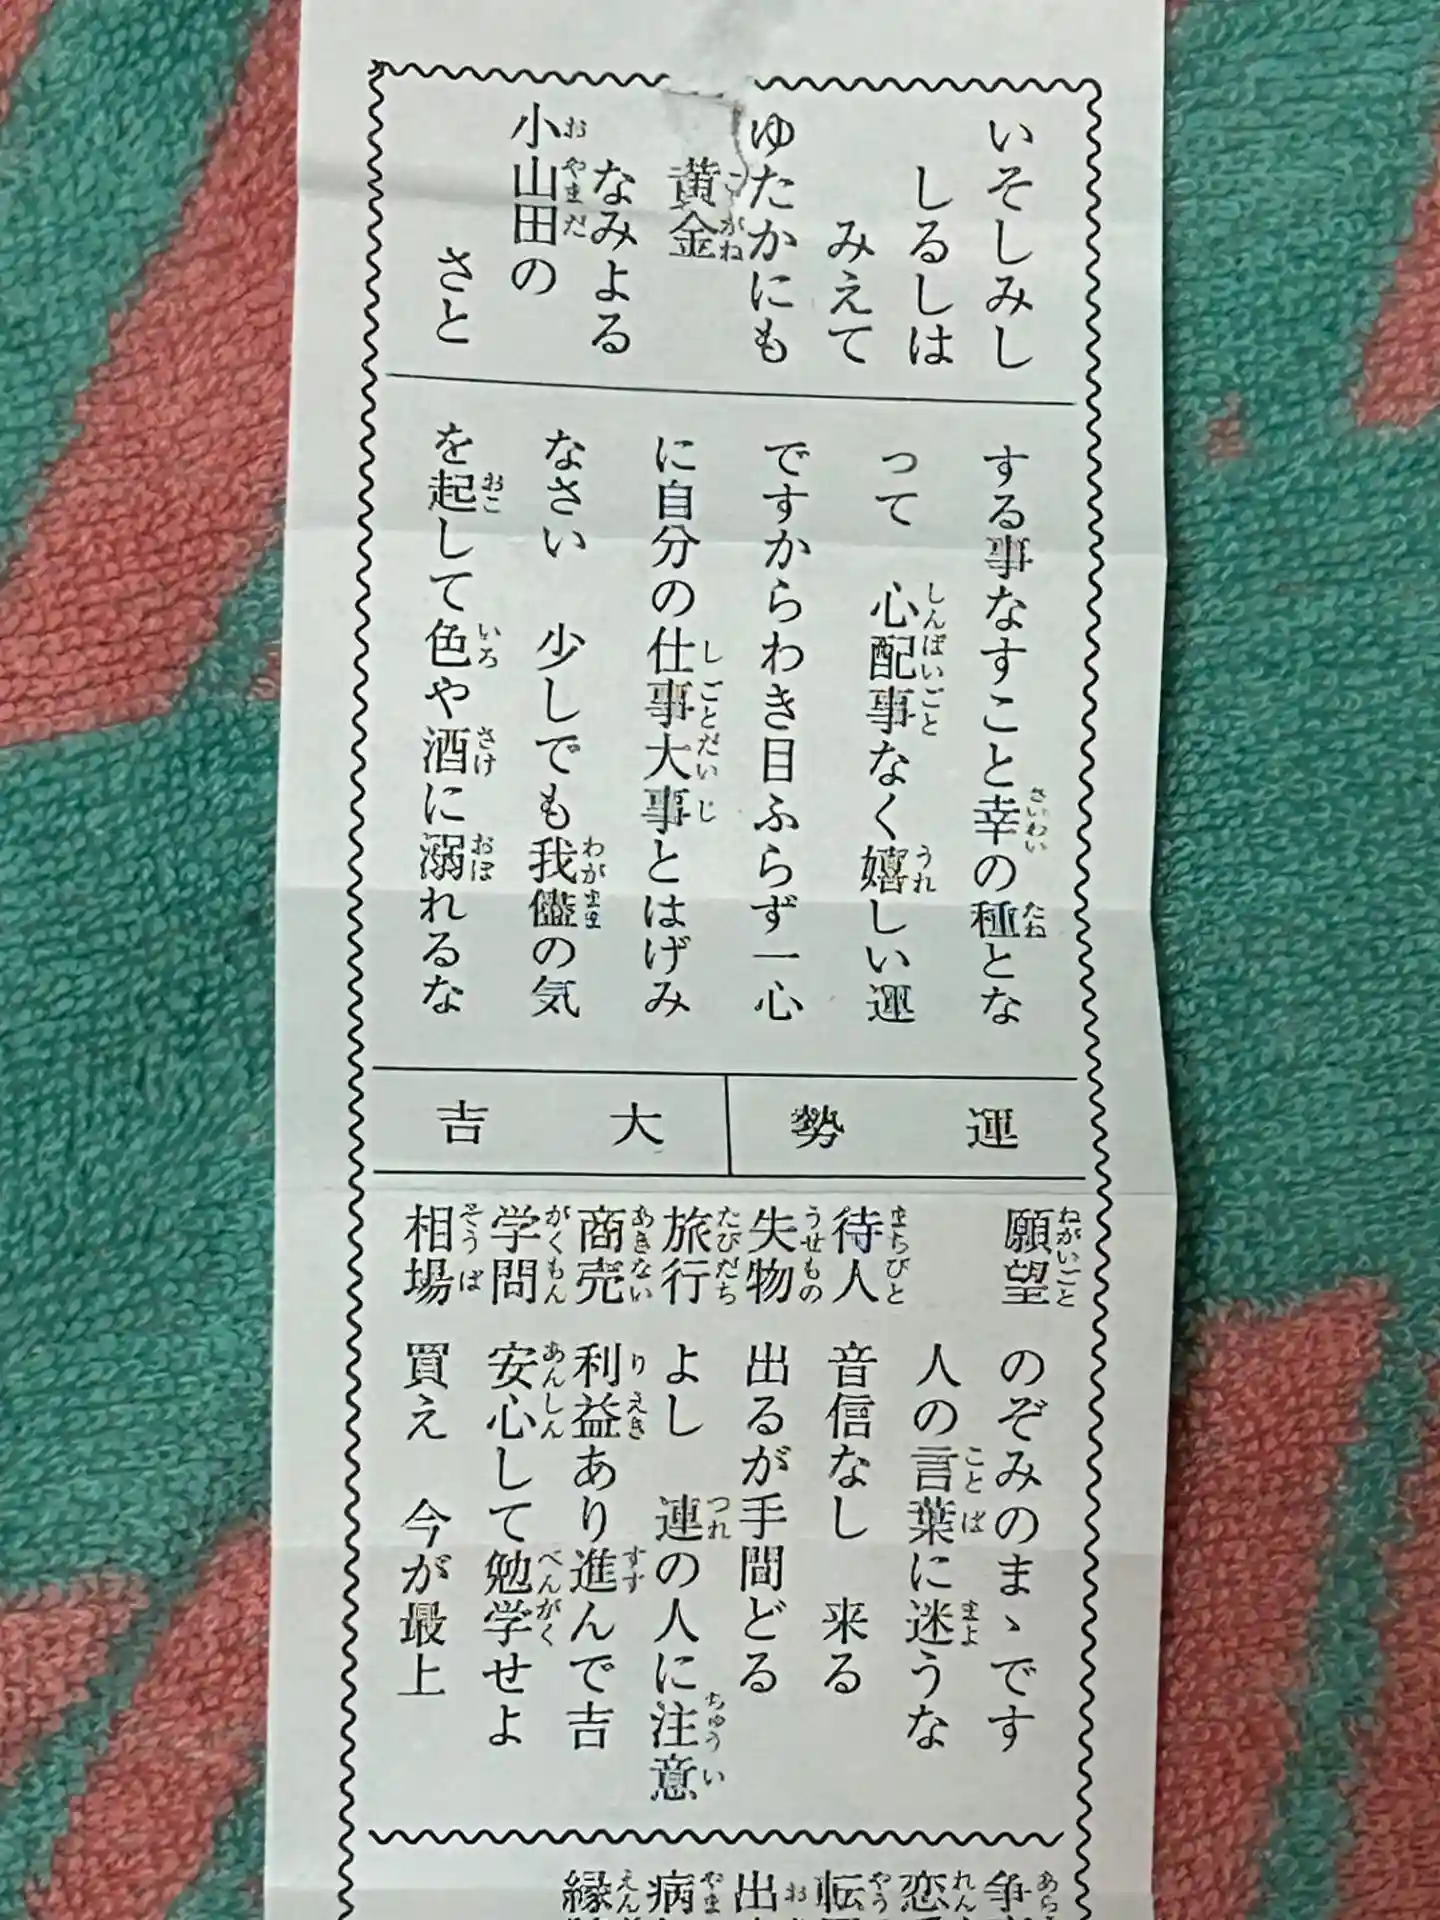 いそしみし
しるしは
みえて
ゆたかにも
黄金
なみよる
小山田の
さと
する事なすこと幸の種とな
って 心配事なく嬉しい運
ですからわき目ふらず一心
に自分の仕事大事とはげみ
なさい 少しでも我儘の気
を起して色や酒に溺れるな
運勢 大吉
願望 のぞみのまゝです
人の言葉に迷うな
待人 音信なし 来る
失物 出るが手間どる
旅行 よし 連の人に注意
商売 利益あり進んで吉
学問 安心して勉学せよ
相場 買え 今が最上
争
恋
転
出
病
縁